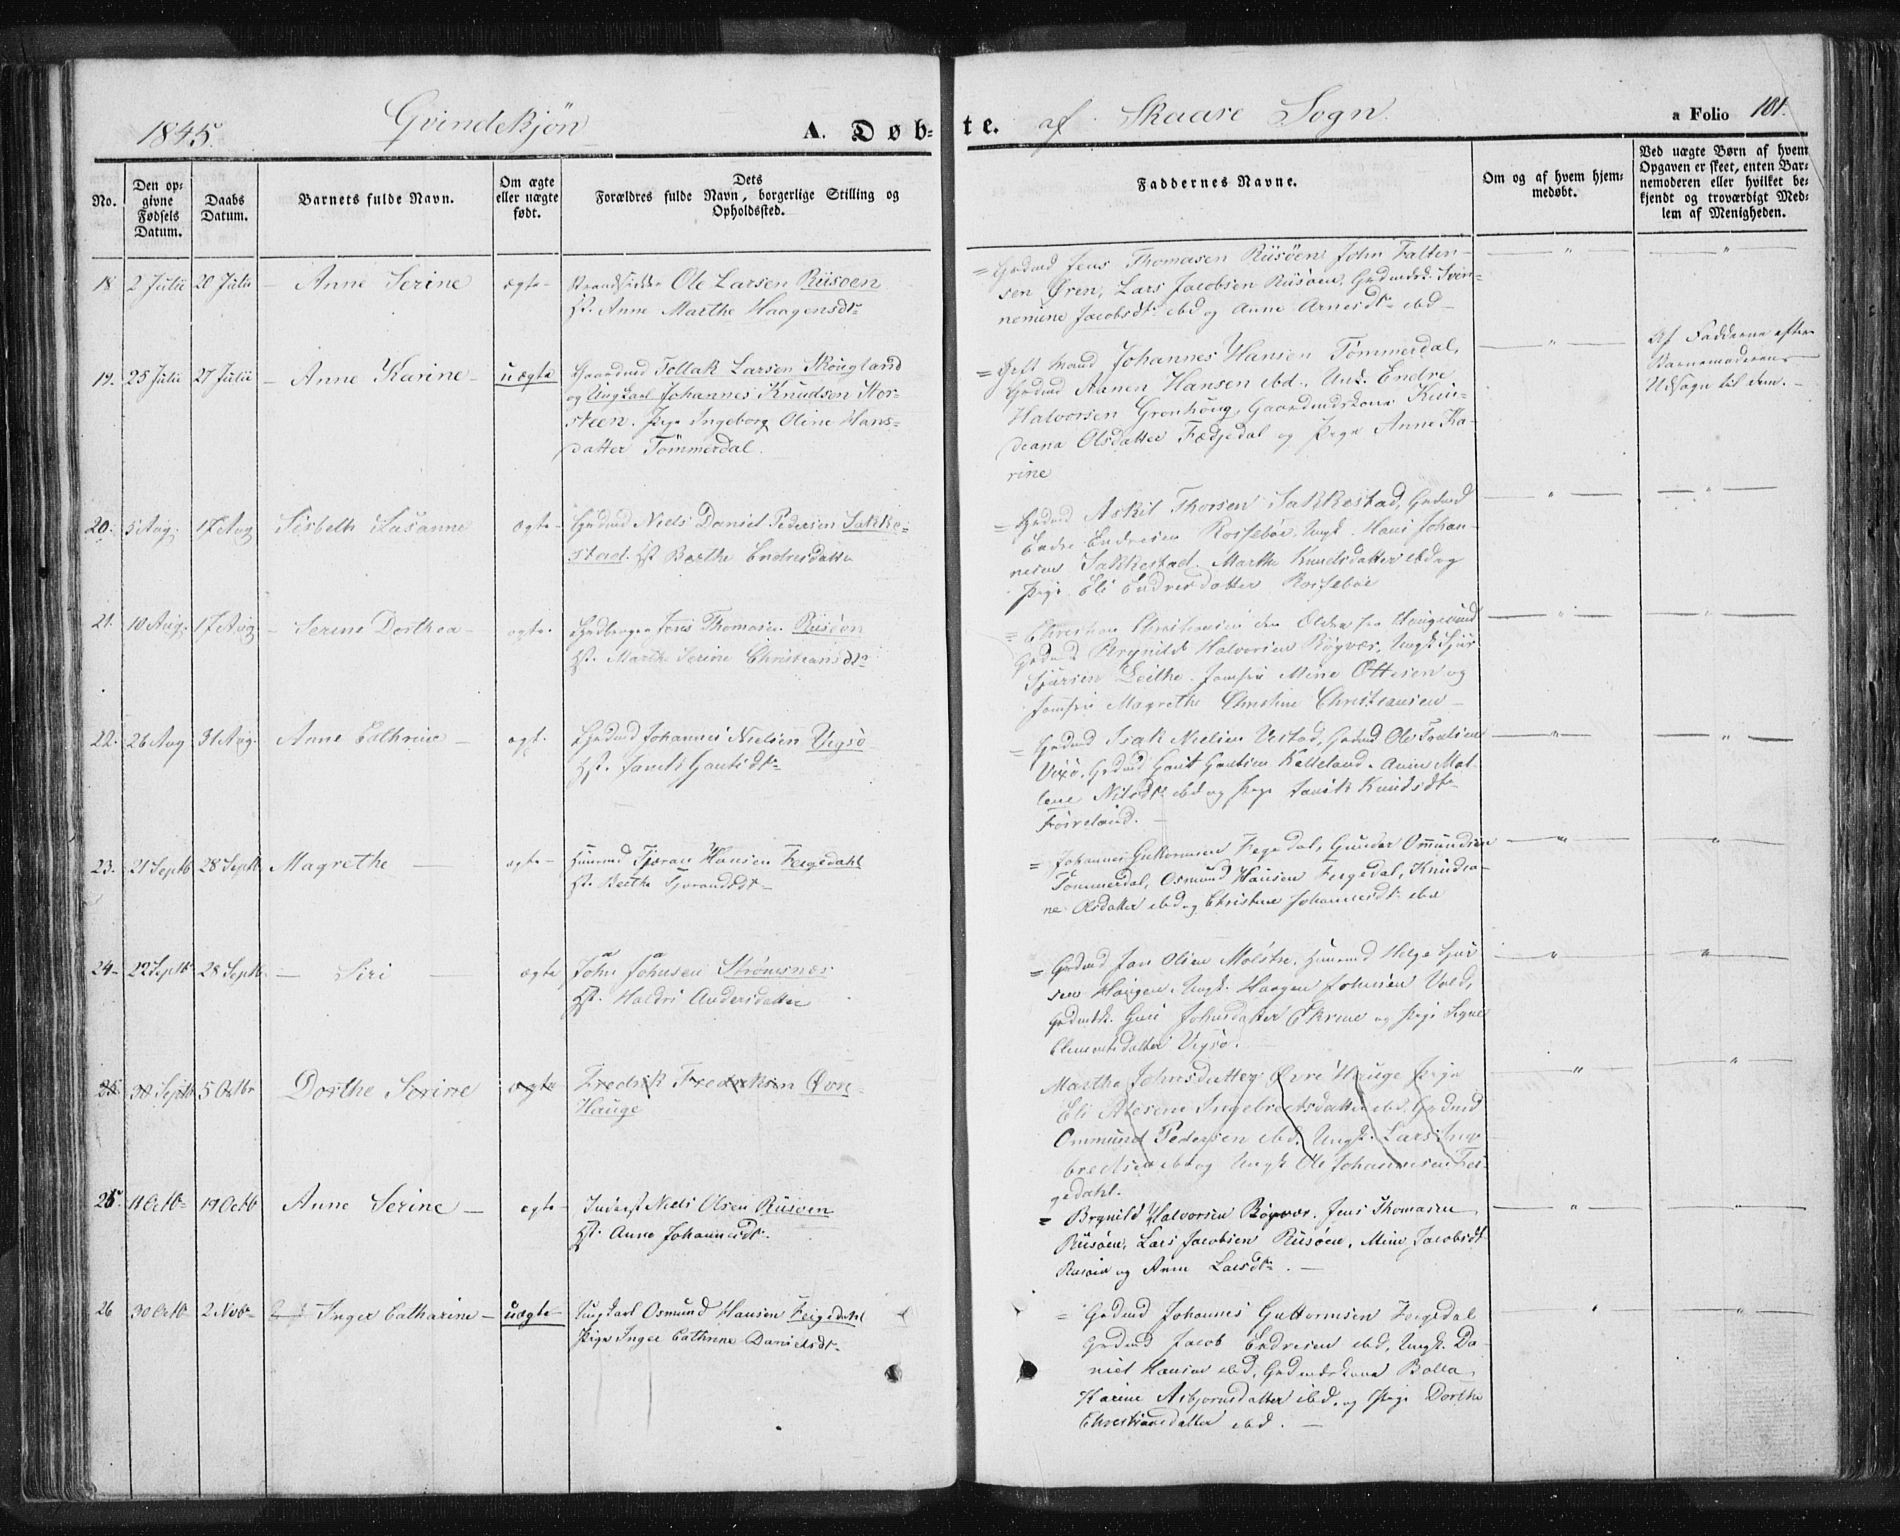 1845. Qvindekjön A. Døb-
te. af Skaare Sogn. a Folio 101.
No.
Den op-
givne
Fødsels
Datum.
Daabs
Datum.
Barnets fulde Navn.
Om ægte
eller uægte
født.
Dets
Forældres fulde Navn, borgerlige Stilling og
Opholdssted.
Faddernes Navne.
Om og af hvem hjem-
medøbt.
Ved uægte Børn af hvem
Opgaven er skeet, enten Bar-
nemoderen eller hvilket be-
kjendt og troværdigt Med-
lem af Menigheden.
18 2 Julii 20 Julii - Anne Serine ægte-
Ole Larsen Riisøen
Hst. Anne Marthe Haagensdtr
= Grdmd Jens Thomasen Riisøen John Falten-
sen Øren, Lars Jacobsen Riisøen, Grdmdsk.
Jacobsdtr ebd og Anne Arnesdtr ebd -
19. 25 Julii 27 Julii - Anne Karine - uægte
Gaardmd Tollak Larsen Skougland
og Ungkarl Johannes Knudsen Stor-
steen. Pige Ingeborg Oline Hans-
datter Tömmerdal.
= Johannes Hansen Tömmerdal,
Grdmd Aanen Hansen ebd., Ungk. Endre
Halvorsen Grönhöug, Gaardmdskone Knu-
deana Olsdatter Fædjedal og Pige Anne Ka-
rine
Af Fadderne efter
Barnemoderens
Udsagn til dem. -
20. 5 Aug. 17 Aug Sisbeth Susanne ægte -
Grdmd Niels Daniel Pedersen Sakke-
stad. Hst Berthe Endresdatter
= Grdmd Askil Thorsen Sakkestad, Grdmd
Endre Endresen Rossebøe, Ungk. Hans Johan-
nesen Sakkestad. Marthe Knudsdatter ebd og
Pige Eli Endresdatter Rossebøe
21. 10 Aug. 17 Aug. - Serine Dorthea - ægte.
Jens Thomasen Riisøen
Hst. Marthe Serine Christiansdtr
= Christian Christiansen den Ældre fra Haugesund
Grdmd Brynild Halvorsen Röyvær, Ungk Sjur
Sjursen Leithe. Jomfru Mine Ottesen og
Jomfru Magrethe Christine Christiansen -
22. 26 Aug 31 Aug. Anne Cathrine - ægt.
Grdmd Johannes Nielsen Vigsö
Hst.
= Grdmd Isak Nielsen Vestad, Grdmd Ole
Vixö, Grdmd Gaut Gautsen Kalleland. Anne Mal-
lene Nilsdtr ebd og Pige Knudsdtr
23. 21 Septb 28 Septb. Magrethe - ægte -
Huusmd Tjøran Hansen Feigedahl
Hst. Berthe Tjorandsdt -
= Johannes Guttormsen Fegedal, Gunder Ommundsen
Tömmerdal, Osmund Hansen Feigedal, Knudea-
ne Olsdatter ebd og Christine Johannesdtr ebd
24- 22 Septb 28 Septb. - Siri - ægte
John Johnsen Strömsnæs
Hst. Haldri Andersdatter
= Grdmd Jan Olsen Molstre, Huusmd Helge Sjur
sen Haugen. Ungk. Haagen Johnsen Vold,
Grdmdsk. Guri Johnsdatter Ekrene og Pige Signe
Clemmetsdatter Vigsö.
25 30 Septb 5 Octbr Dorthe Serine ægte
Fredrik Fredriksen Øvre-
Hauge
Marthe Johnsdatter Øvre Hauge Pige
Eli Ingebretsdatter ebd, Grdmd
Ommund Pedersen ebd. Ungk. Lars Inge
bretsen ebd og Ungk Ole Johannesen Fei-
gedahl.
25. 11 Octb- 19 Octb Anne Serine - ægte -
Inderst Niels Olsen Riisøen
Hst. Anne Johannesdtr.
= Brynild Halvorsen Röyvær. Jens Thomasen
Riisøen, Lars Jacobsen Riisøen, Mine Jacobsdt
Riisøen og Anne Larsdtr. -
26 30 Octb 2 Novb- Inger Catharine - uægte-
Ungkarl Osmund Hansen Feigedahl
Pige Inger Cathrine Danielsdtr
= Grdmd Johannes Guttormsen Feigedal
Grdmd Jacob Endresen ebd, Ungk. Da-
niel Hansen ebd, Grdmdskone Bolla
Karine Asbjørnsdatter ebd, og Pige Dorthe
Christiansdatter ebd. -